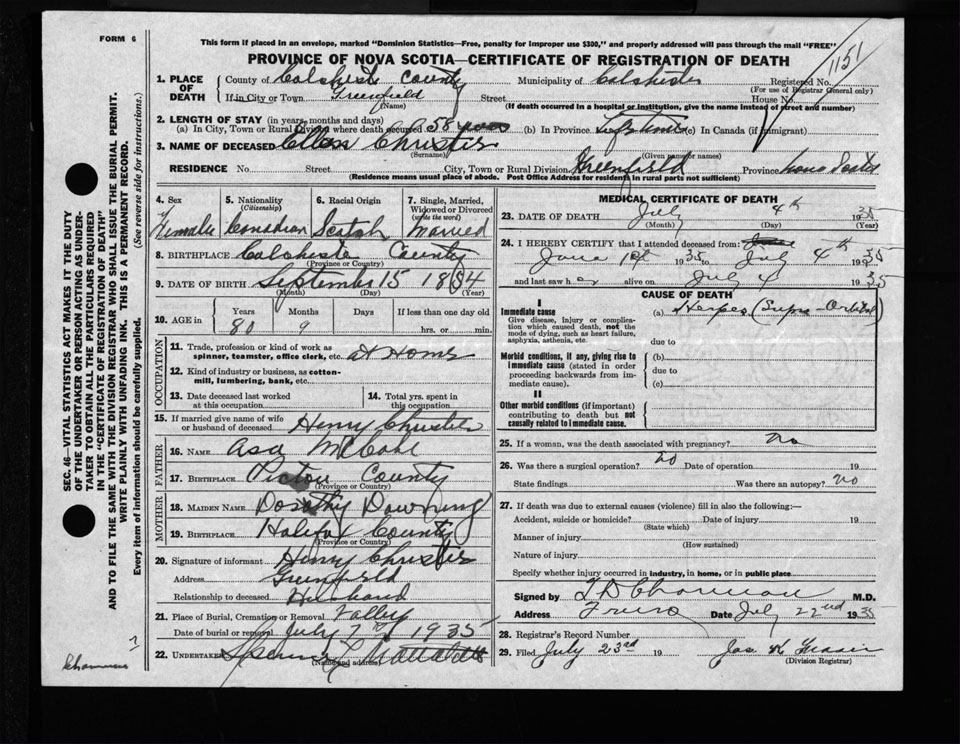 FORM 6
This form if placed in an envelope, marked "Dominion Statistics—Free, penalty for improper use $300," and properly addressed will pass through the mail "FREE"
PROVINCE OF NOVA SCOTIA—CERTIFICATE OF REGISTRATION OF DEATH
1151
1. PLACE OF DEATH
County of Colchester County Municipality of Colchester Registered No.
(For use of Registrar General only)
If in City or Town Greenfield Street House No.
(Name) (If death occurred in a hospital or institution, give the name instead of street and number)
2. LENGTH OF STAY (in years, months and days)
(a) In City, Town or Rural Division where death occurred 58 years (b) In Province Lifetime (c) In Canada (if immigrant)
3. NAME OF DECEASED Ellen Christie
(Surname) (Given name or names)
RESIDENCE No. Street City, Town or Rural Division Greenfield Province Nova Scotia
(Residence means usual place of abode. Post Office Address for residents in rural parts not sufficient)
4. Sex Female
5. Nationality (Citizenship) Canadian
6. Racial Origin Scotch
7. Single, Married, Widowed or Divorced (write the word) Married
8. BIRTHPLACE Colchester County
(Province or Country)
9. DATE OF BIRTH September 15 1854
(Month) (Day) (Year)
10. AGE in Years Months Days If less than one day old
80 9 hrs. or min.
OCCUPATION
11. Trade, profession or kind of work as spinner, teamster, office clerk, etc. at Home
12. Kind of industry or business, as cotton-mill, lumbering, bank, etc.
13. Date deceased last worked at this occupation
14. Total yrs. spent in this occupation
15. If married give name of wife or husband of deceased Henry Christie
FATHER
16. NAME Asa McCabe
17. BIRTHPLACE Pictou County
(Province or Country)
MOTHER
18. MAIDEN NAME Dorothy Downing
19. BIRTHPLACE Halifax County
(Province or Country)
20. Signature of informant Henry Christie
Address Greenfield
Relationship to deceased Husband
21. Place of Burial, Cremation or Removal Valley
Date of burial or removal July 7 1935
22. UNDERTAKER
(Name and address)
MEDICAL CERTIFICATE OF DEATH
23. DATE OF DEATH July 4th 1935
(Month) (Day)
24. I HEREBY CERTIFY that I attended deceased from:
June 1st 1935 to July 4th 1935
and last saw her alive on July 4 1935
CAUSE OF DEATH
I
Immediate cause
Give disease, injury or complication which caused death, not the mode of dying, such as heart failure, asphyxia, asthenia, etc.
(a) Herpes (Supra-Orbital)
due to
Morbid conditions, if any, giving rise to immediate cause (stated in order proceeding backwards from immediate cause).
(b)
due to
(c)
II
Other morbid conditions (if important) contributing to death but not causally related to immediate cause.
25. If a woman, was the death associated with pregnancy? no
26. Was there a surgical operation? no Date of operation 19
State findings Was there an autopsy? no
27. If death was due to external causes (violence) fill in also the following:—
Accident, suicide or homicide? Date of injury 19
(State which)
Manner of injury
(How sustained)
Nature of injury
Specify whether injury occurred in industry, in home, or in public place
Signed by M.D.
Address Truro Date July 22nd 1935
28. Registrar's Record Number
29. Filed July 23rd 19 Jas K Fraser
(Division Registrar)
SEC. 46—VITAL STATISTICS ACT MAKES IT THE DUTY
OF THE UNDERTAKER OR PERSON ACTING AS UNDER-
TAKER TO OBTAIN ALL THE PARTICULARS REQUIRED
IN THE "CERTIFICATE OF REGISTRATION OF DEATH"
AND TO FILE THE SAME WITH THE DIVISION REGISTRAR WHO SHALL ISSUE THE BURIAL PERMIT.
WRITE PLAINLY WITH UNFADING INK. THIS IS A PERMANENT RECORD.
Every item of information should be carefully supplied. (See reverse side for instructions.)